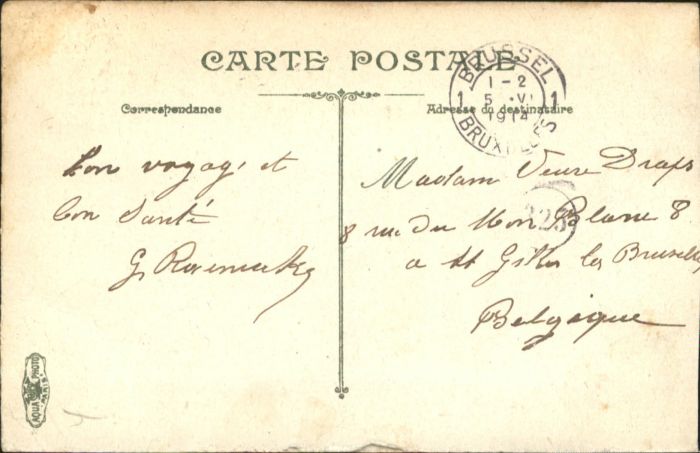 CARTE POSTALE
Correspondance
Adresse du destinataire
BRUSSEL
1 1-2 1
5 VI
1914
BRUXELLES
bon voyage et
bon Santé
G.
Madame Veuve Draps
8 rue du Mon Blanc 8
a St Gilles les Bruxelles
Belgique
223
AQUA PHOTO
PARIS